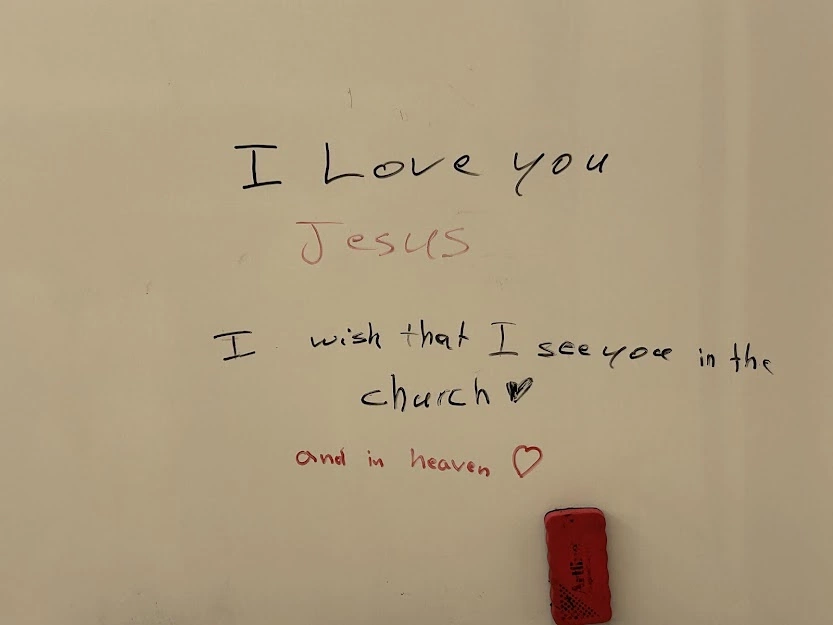 I Love you
Jesus
I wish that I see you in the
church ♥
and in heaven ♡
Artline